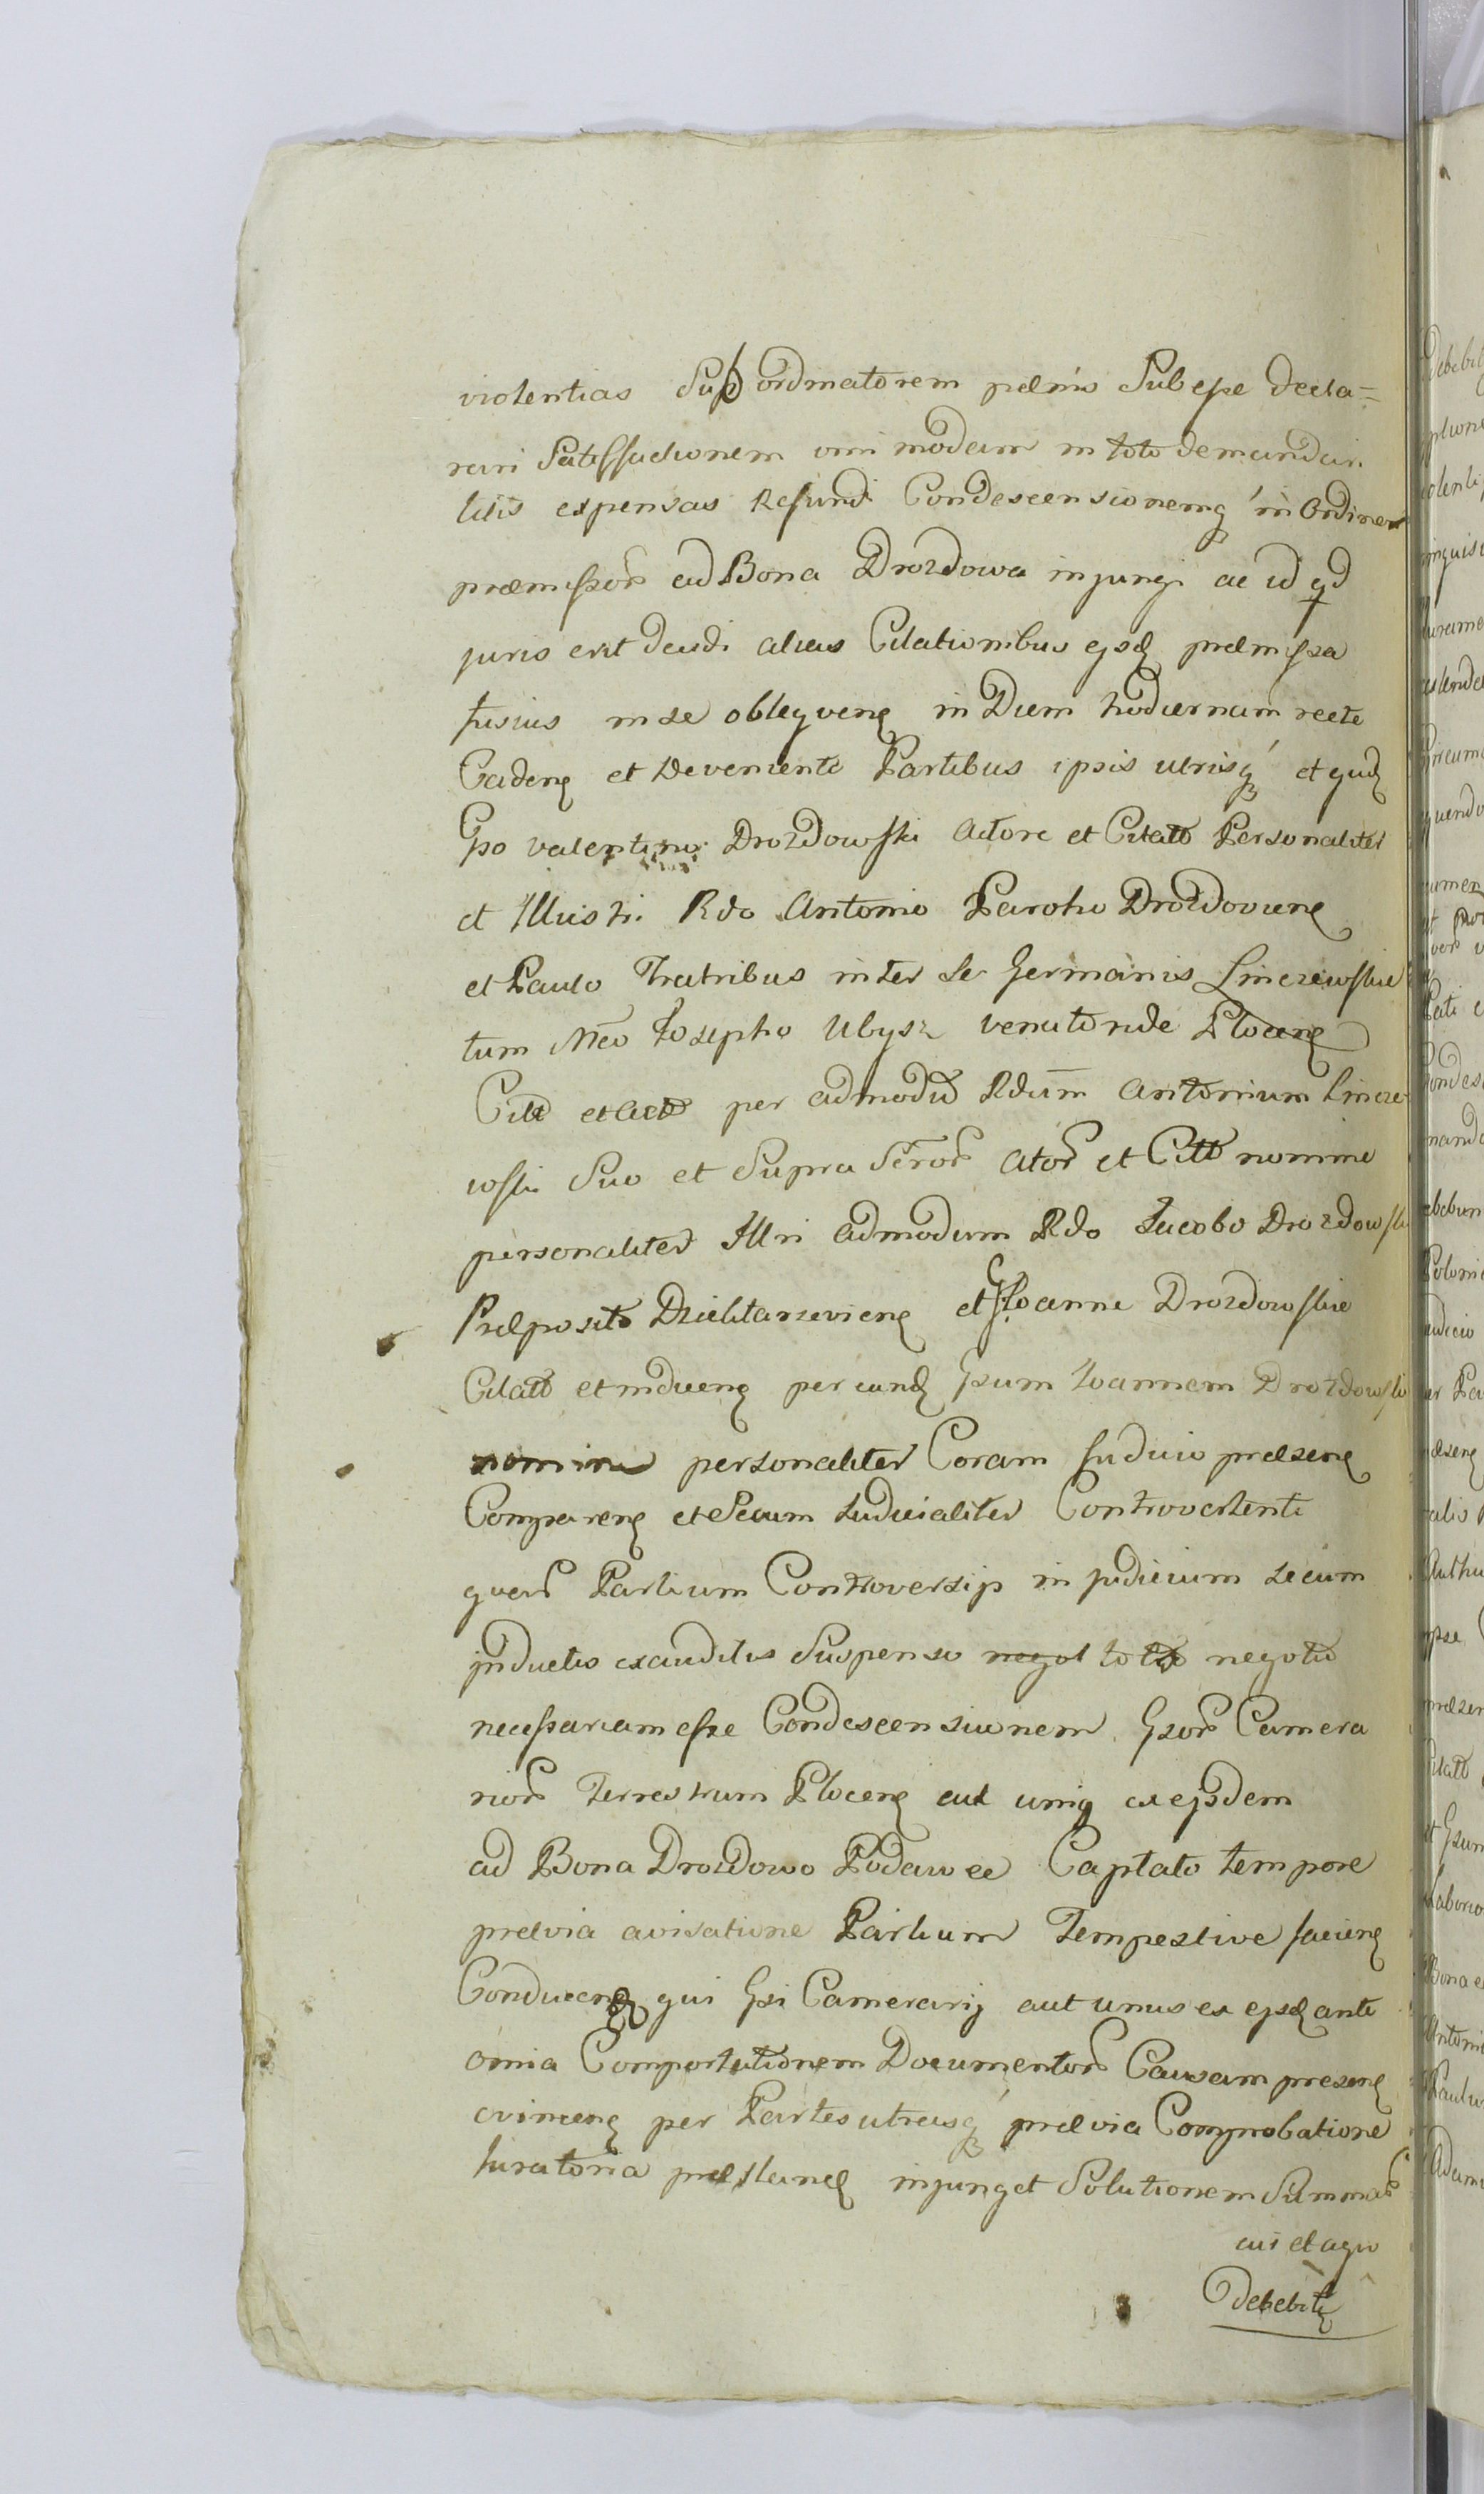 violentias Sub ordinatorem pœnis Subesse decla=
rari Satisfactionem omnimodam in toto demandari
litis expensas Refundi Condescensionemq́ in Ordinem
præmissor ad Bona Drozdowa injungi ac id qd
juris erit decidi alias Citationibus ejsd præmissa
fusius in se obloqven in Diem hodiernum recte
Caden et Devenienti Partibus ipsis utrisq́ et quid
Gso Valentino Drozdowski Actore et Citatto Personaliter
et Illustri Rdo Antonio Parocho Drozdovien
et Paulo Fratribus inter Se Germanis Linczewskie
tum Mco Josepho Ubysz Venatoride Plocen
Citt et Act per admodu Rdum Antonium Lincze
wski Suo et Supra Scror Ator et Citt nomine
personaliter Illri Admodum Rdo Jacobo Drozdowski
Præposito Dziektarzevien et G Joanne Drozdowskie
Citatt et induen per eund Gsum Joannem Drozdowski
nomine personaliter Coram Judicio præsen
Comparen et Secum Judicialiter Controvertenti
quar Partium Controversijs in judicium secum
inductis exauditis Suspenso negot toto negotio
necessariam esse Condescensionem Gsor Camera
rior Terrestrium Plocen aut unig ex ejsdem
ad Bona Drozdowo Podawce Captato tempore
prævia avisatione Partium Tempestive facien
Conducen qui Gsi Camerarij aut unus ex ejsd ante
omia Comportationem Documentor Causam presen
crimcen per Partes utrasq́ prævia Comprobatione
Juratoria præstan injunget Solutionem Summar
cui et a quo
Debebit